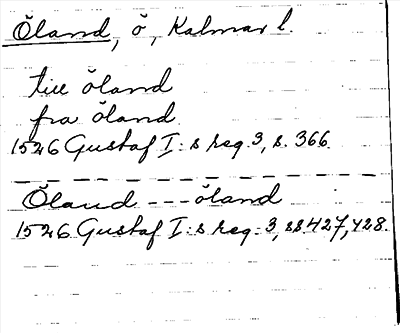 Öland, ö, Kalmar l.
till öland
fra öland
1526 Gustaf I:s reg. 3, s. 366
Öland --- öland
1526 Gustaf I:s reg. 3, ss 427, 428.